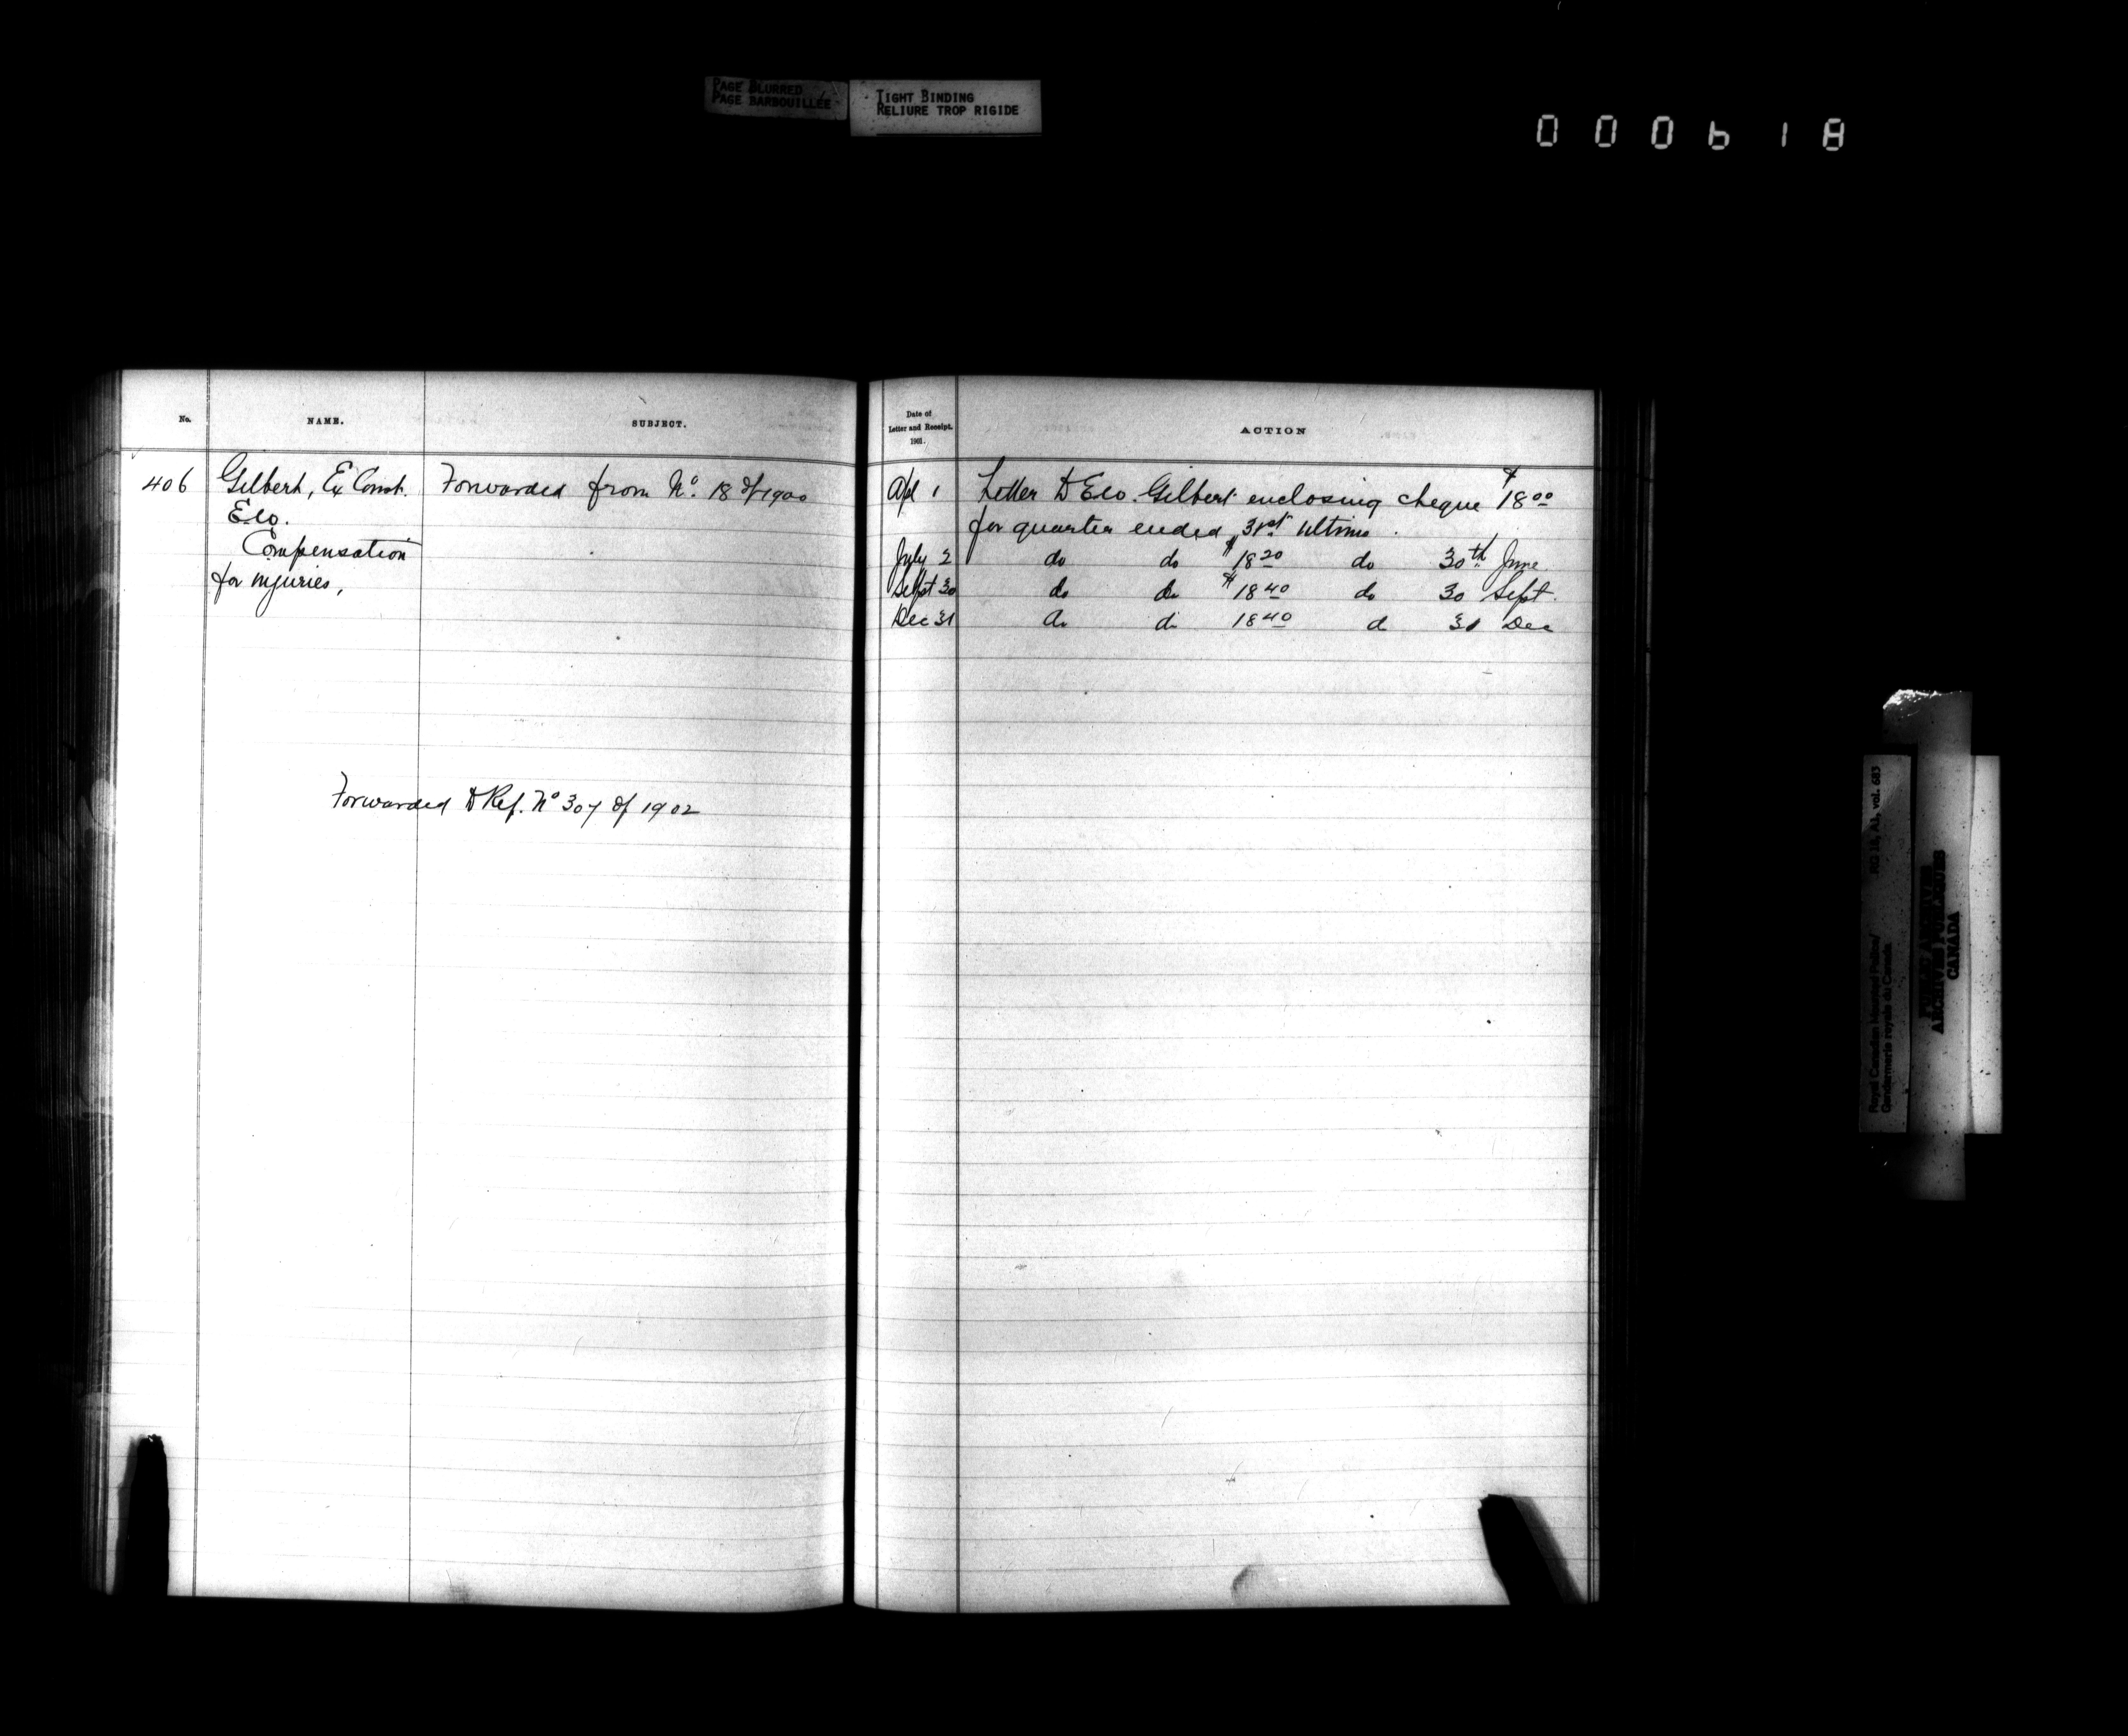 PAGE BLURRED
PAGE BARBOUILLÉE
TIGHT BINDING
RELIURE TROP RIGIDE
000618
No.
NAME.
SUBJECT.
406
Gilbert, Ex Const.
Geo.
Compensation
for injuries,
Forwarded from No. 18 of 1900
Forwarded to Ref. No 307 of 1902
Date of
Letter and Receipt.
1901.
ACTION
Apl 1 Letter to Geo. Gilbert enclosing cheque $18.00
for quarter ended 31st ultimo.
July 2 do do $18.20 do 30th June
Sept 30 do do $18.40 do 30 Sept.
Dec 31 do do 18.40 do 31 Dec
Royal Canadian Mounted Police/
Gendarmerie royale du Canada
RG 18, A1, vol. 683
PUBLIC ARCHIVES
ARCHIVES PUBLIQUES
CANADA